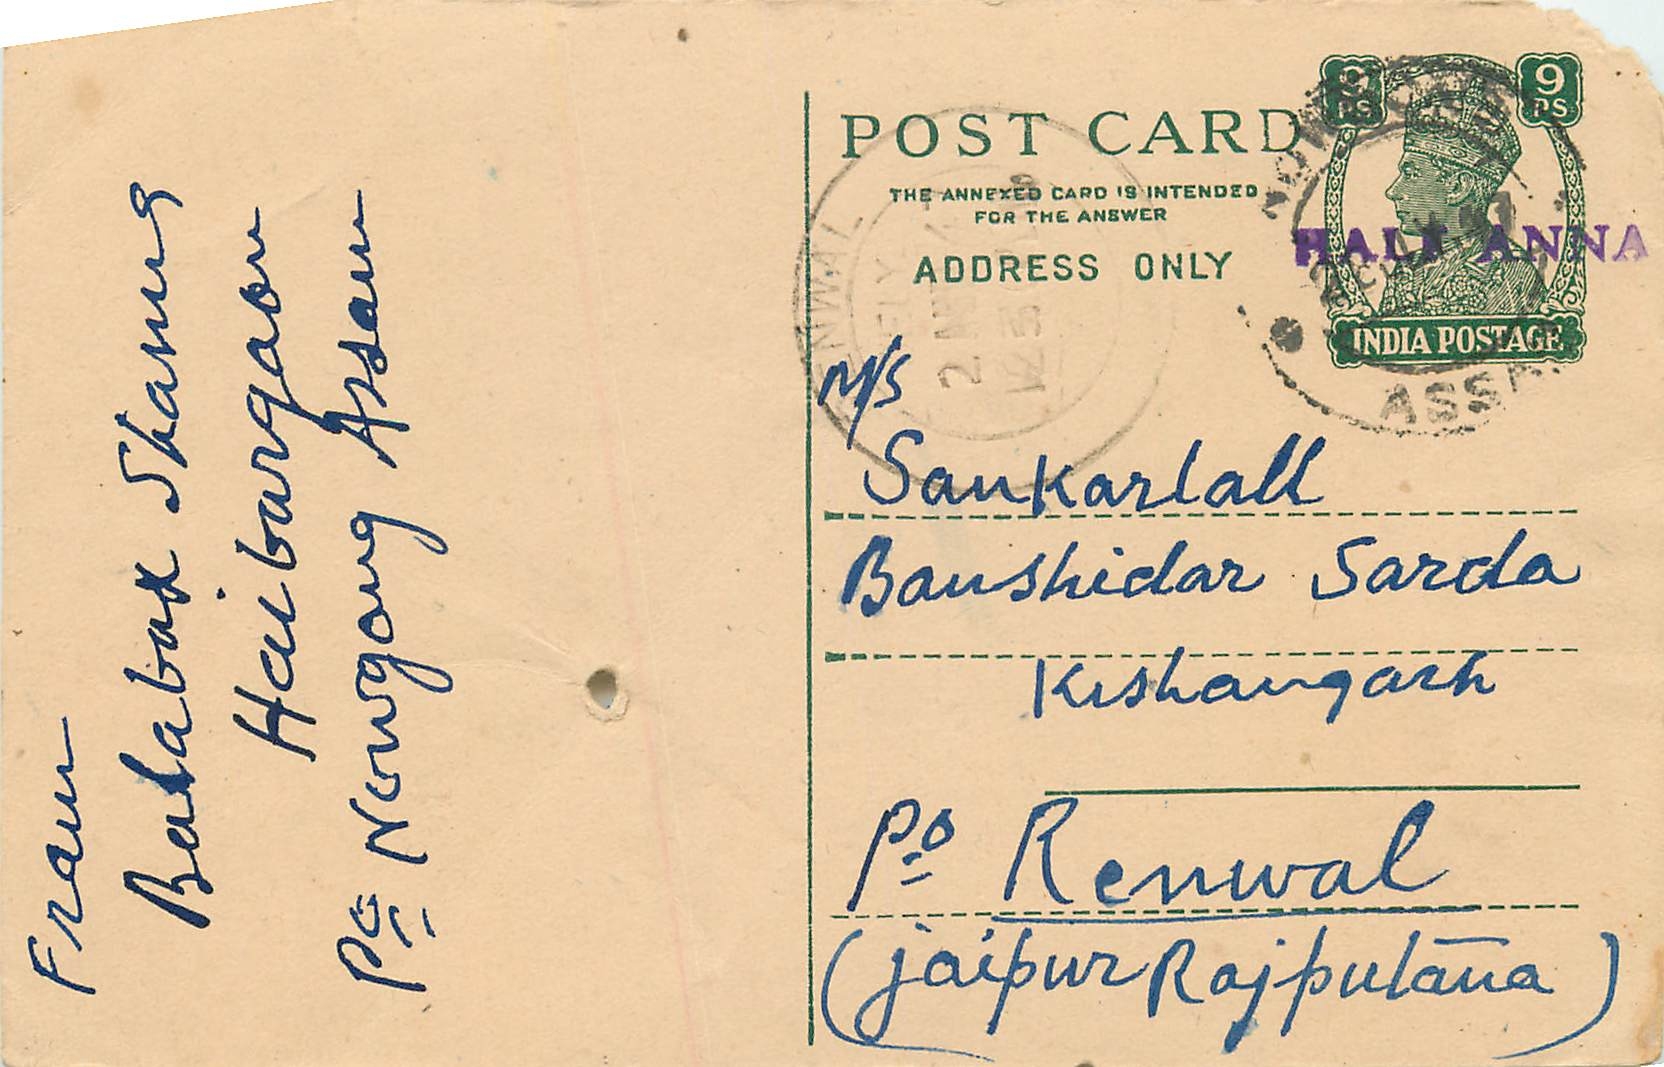 From
Balabox Sharma
Haibargaon
Po Nowgong Assam
POST CARD
THE ANNEXED CARD IS INTENDED
FOR THE ANSWER
ADDRESS ONLY
9 PS
9 PS
HALF ANNA
INDIA POSTAGE
NOWGONG
ASSAM
RENWAL
M/S
Sankarlall
Banshidar Sarda
Kishangarh
Po Renwal
(jaipur Rajputana)